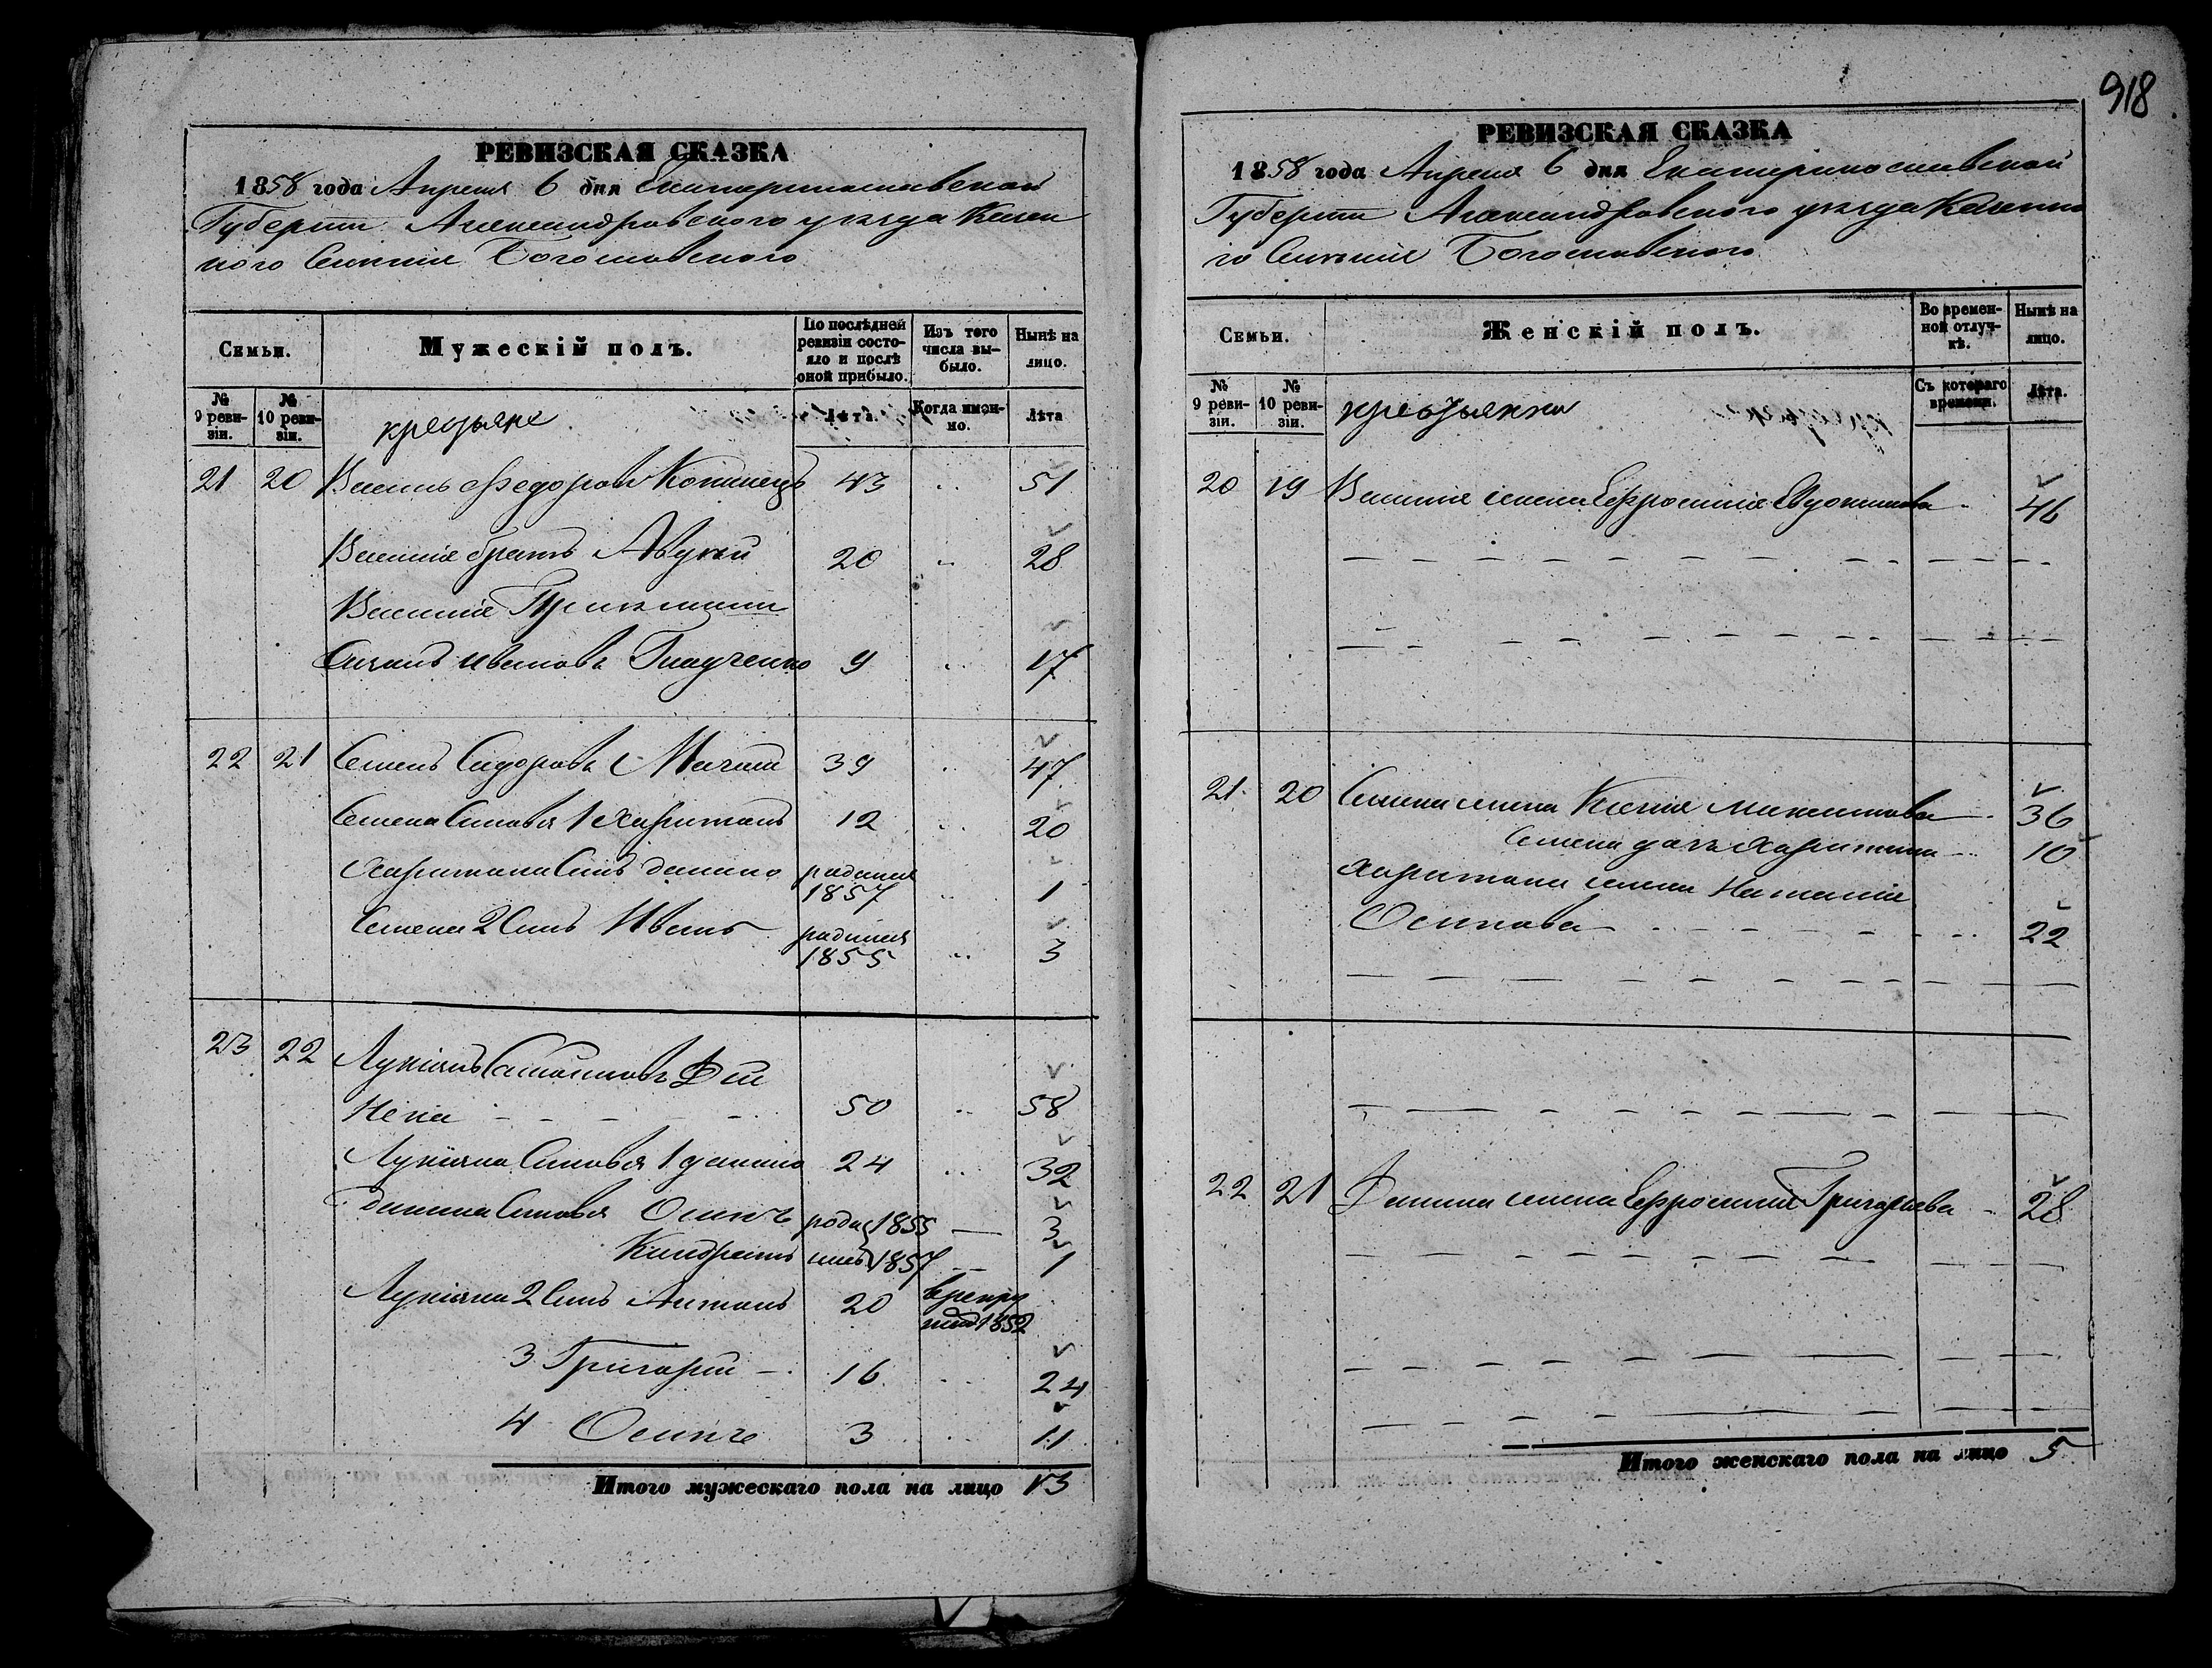 918
РЕВИЗСКАЯ СКАЗКА
1858 года Апреля 6 дня Екатеринославской
Губернiи Александровского уезда Казен
ного Селенiя Богословского
Семьи.
Мужескiй полъ.
По послѣдней ревизiи состояло и послѣ оной прибыло.
Изъ того числа вы-было.
Нынѣ на лицо.
№ 9 реви-зiи.
№ 10 реви-зiи.
крестьяне
Лѣта.
Когда имен-но.
Лѣта
21 20 Василь Федоровъ 43 .. 51
Василiя братъ Авдѣй 20 .. 28
Василiя
Ивановъ 9 .. 17
22 21 Семенъ Сидоровъ 39 .. 47
Семена Сыновья 1 Харитонъ 12 .. 20
Харитона Сынъ данило родился 1857 .. 1
Семена 2 Сынъ Иванъ родился 1855 .. 3
23 22 Лукiянъ
50 .. 58
Лукiяна Сыновья 1 данило 24 .. 32
данила Сыновья Осипъ 1855 — 3
Кондратъ 1857 — 1
Лукiяна 2 Сынъ Антонъ 20 1852
3 Григорiй 16 .. 24
4 Осипъ 3 .. 11
Итого мужескаго пола на лицо 13
РЕВИЗСКАЯ СКАЗКА
1858 года Апреля 6 дня Екатеринославской
Губернiи Александровского уезда Казенно
го Селенiя Богословского
Семьи.
Женскiй полъ.
Во времен-ной отлуч-кѣ.
Нынѣ на лицо.
№ 9 реви-зiи.
№ 10 реви-зiи.
крестьянки
Съ котораго времени.
Лѣта.
20 19 Василiя жена Ефросинiя Евдокимова 46
21 20 Семена жена Ксенiя Никитова 36
Семена дочь Харитина 10
Харитона жена Наталiя
Осипова 22
22 21 Данила жена Ефросинiя Григорьева 28
Итого женскаго пола на лицо 5